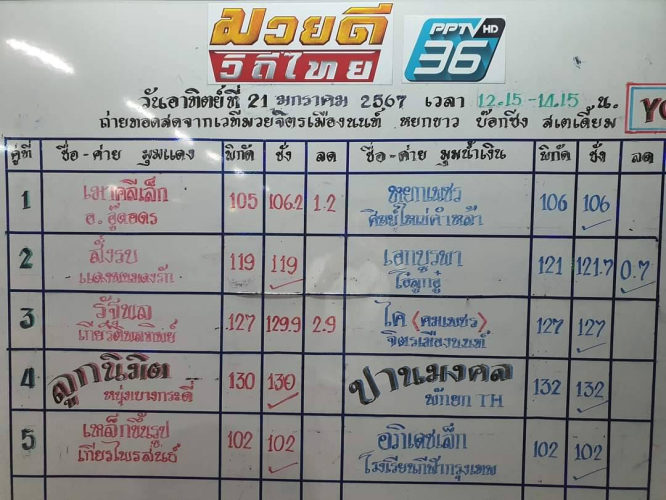 มวยดี
วิถีไทย
PPTV HD
36
วันอาทิตย์ที่ 21 มกราคม 2567 เวลา 12.15-14.15 น.
ถ่ายทอดสดจากเวทีมวยจิตรเมืองนนท์ หยกขาว บ๊อกซิ่ง สเตเดี้ยม
คู่ที่ ชื่อ-ค่าย มุมแดง พิกัด ชั่ง ลด ชื่อ-ค่าย มุมน้ำเงิน พิกัด ชั่ง ลด
1 เมาคลีเล็ก 105 106.2 1.2 หยกเพชร 106 106
อ.อู๊ดอุดร ศิษย์ใหญ่คำหล้า
2 สิ่งรบ 119 119 เอกบูรพา 121 121.7 0.7
3 รัฐพล 127 129.9 2.9 ไค (คมเพชร) 127 127
เกียรติพลทิพย์ จิตรเมืองนนท์
4 ลูกนิมิต 130 130 ปานมงคล 132 132
หนุ่มบางกระดี่ พักยก TH
5 เหล็กขึ้นรูป 102 102 อภิเดชเล็ก 102 102
เกียรไพรสนธ์ โรงเรียนกีฬากรุงเทพ